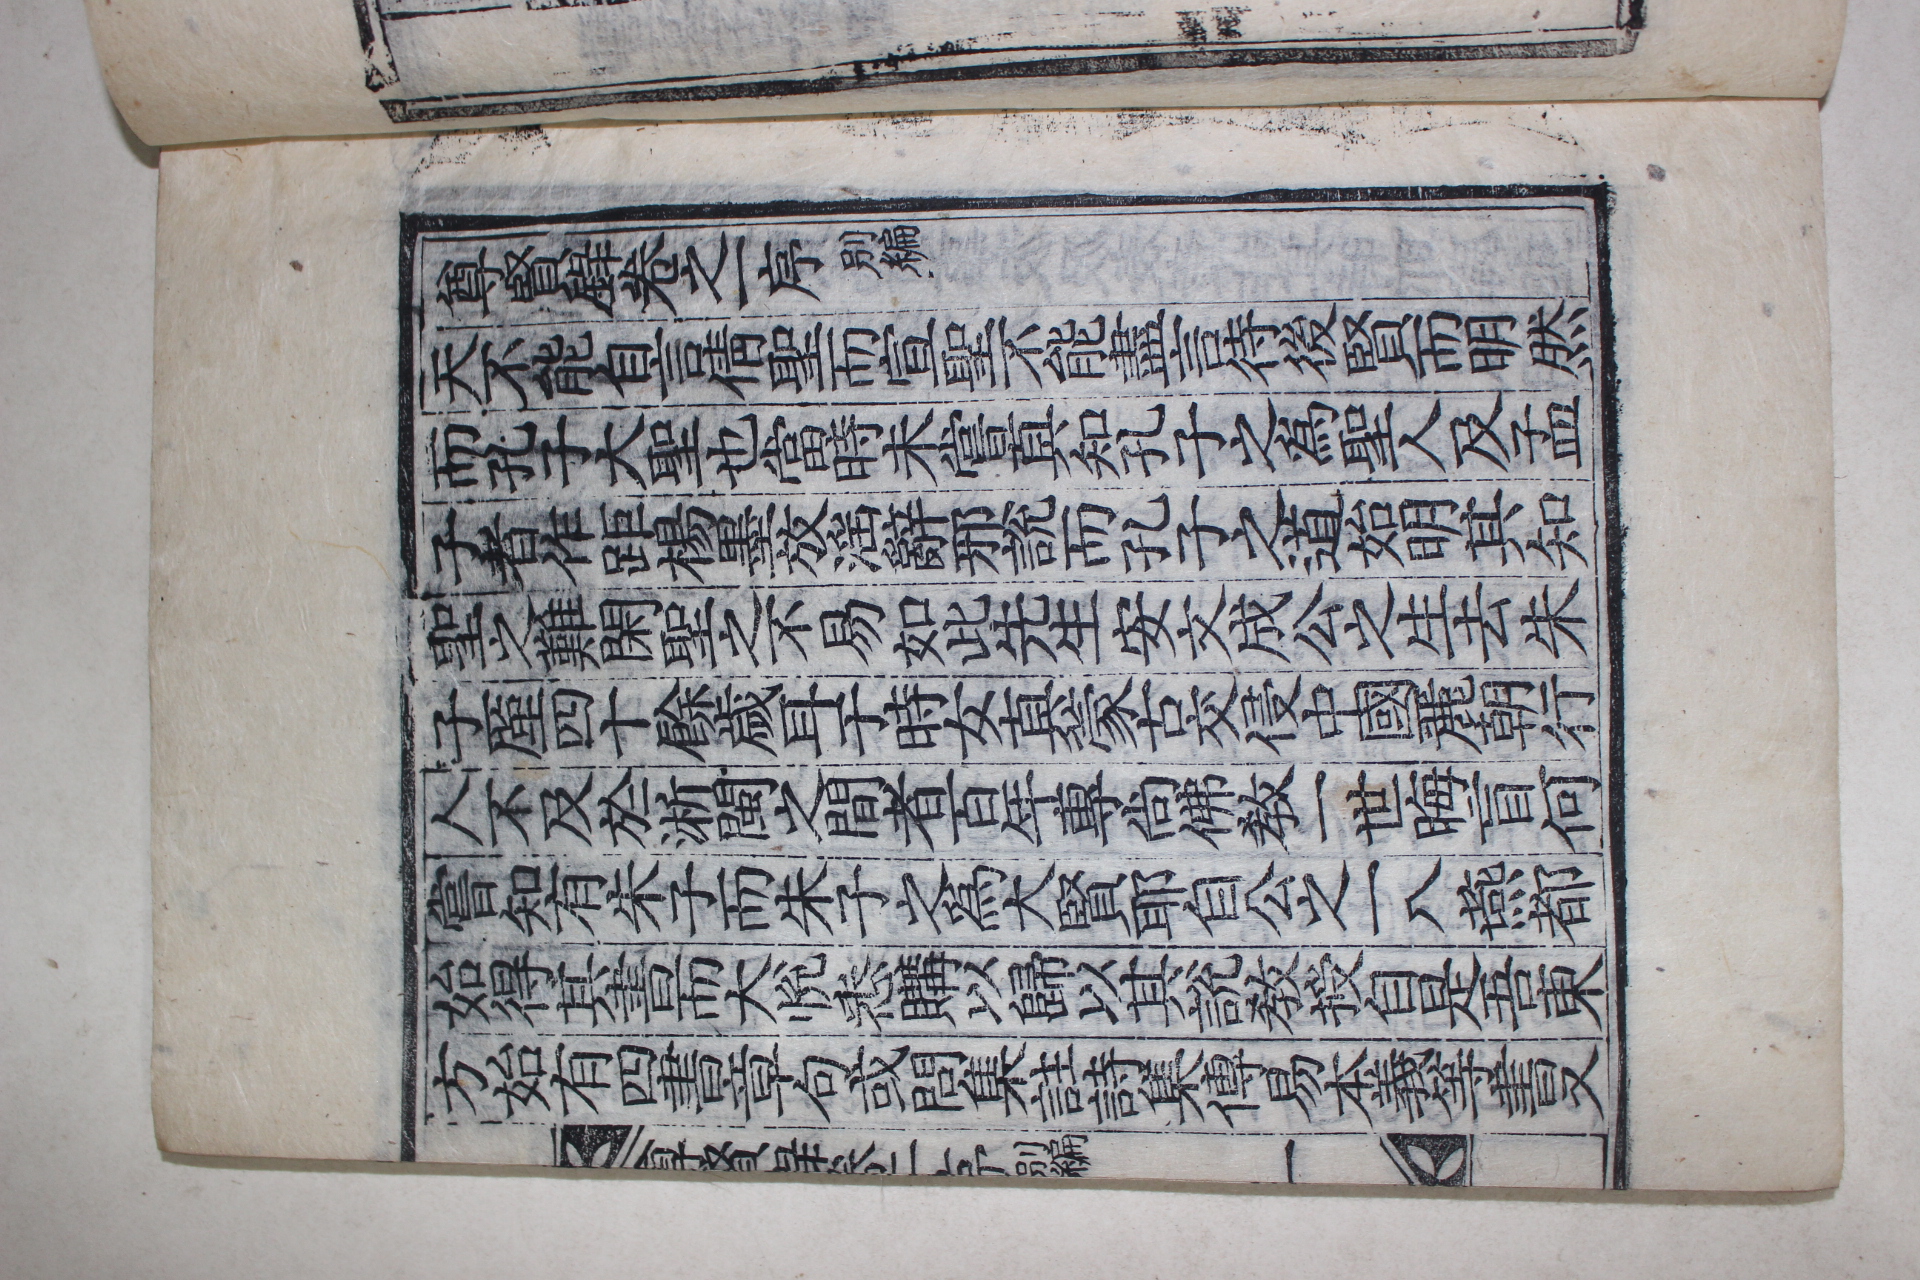 尊賢卷之一序 別編
天不能自言借聖而宣聖不能盡言待後賢而明然
而孔子大聖也當時未嘗眞知孔子之爲聖人及子孟
子者作距楊墨放淫辭邪說而孔子之道始明其知
聖之難閑聖之不易如此先生安文成公之生去朱
子廑四十餘歲耳于時女眞蒙古交侵中國麗朝行
人不及於浙閩之間者百年專尙佛敎一世晦盲何
嘗知有朱子而朱子之爲大賢耶自公之一入燕都
始得其書而大悅然購以歸以其說敎授自是吾東
方始有四書章句或問集註詩集傳易本義等書又